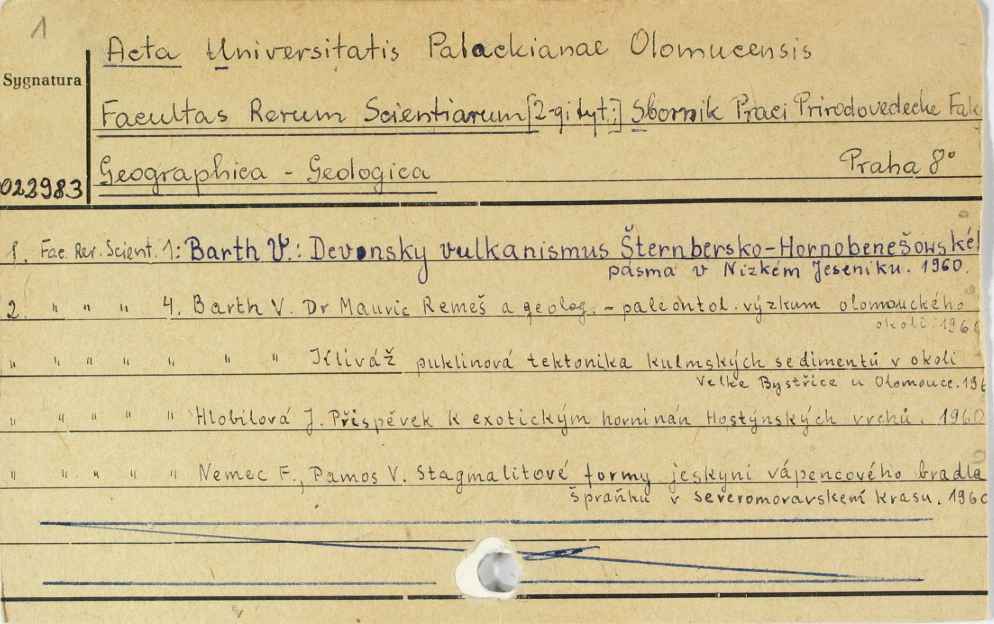 1
Acta Universitatis Palackianae Olomucensis
Sygnatura
Facultas Rerum Scientiarum [2-gi tyt:] Sbornik Praci Prirodovedecke Fak
Geographica - Geologica Praha 8°
022983
1. Fac. Rer. Scient. 1: Barth V.: Devonsky vulkanismus Šternbersko-Hornobenešowské
pásma v Nizkém Jeseniku. 1960.
2. " " " 4. Barth V. Dr Mauric Remeš a geolog. - paleontol. výzkum olomouckého
okoli. 1960
" " " " " " Kliváž puklinová tektonika kulmských sedimentů v okoli
Velke Bystřice u Olomouce. 196
" " " " " Hlobilová J. Přispěvek k exotickým horninán Hostýnských vrchů. 1960
" " " " " Nemec F., Pamos V. Stagmalitové formy jeskyni vápencového bradla
Špraňku v Severomoravskem krasu. 1960